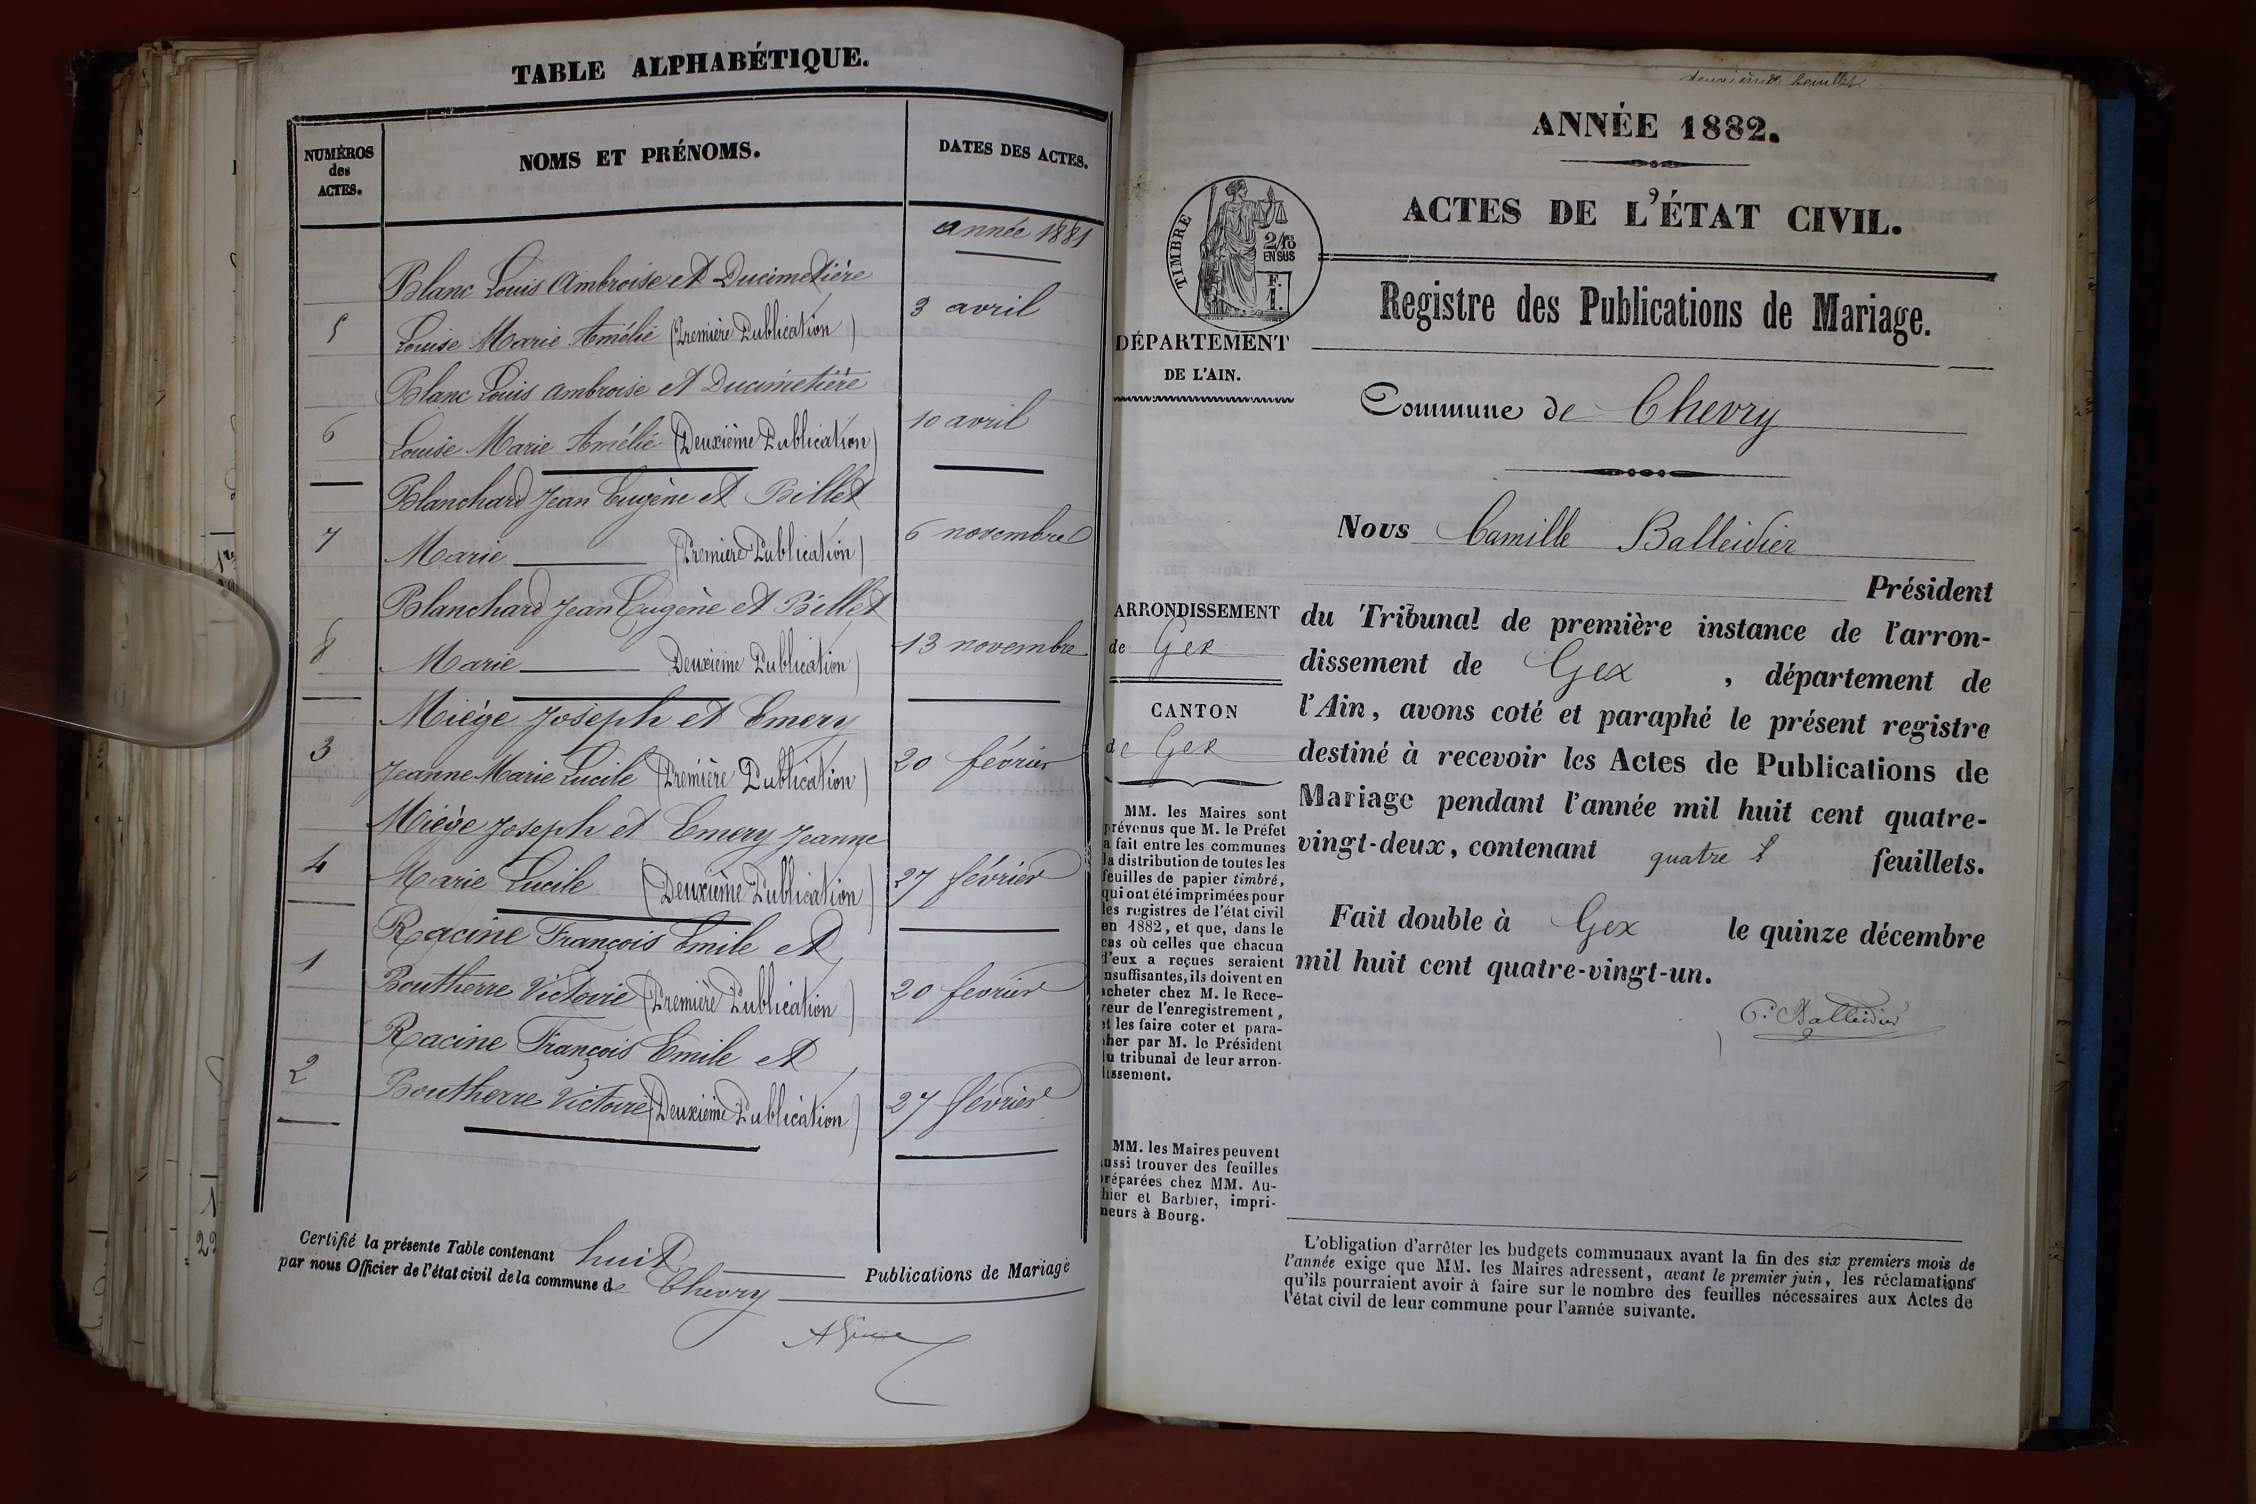 TABLE ALPHABÉTIQUE.
NUMÉROS
des
ACTES.
NOMS ET PRÉNOMS.
DATES DES ACTES.
année 1881
Blanc Louis Ambroise et Ducimetière
5 Louise Marie Amélie (Première Publication) 3 avril
Blanc Louis Ambroise et Ducimetière
6 Louise Marie Amélie (Deuxième Publication) 10 avril
Blanchard Jean Eugène et Billet
7 Marie (Première Publication) 6 novembre
Blanchard Jean Eugène et Billet
8 Marie Deuxième Publication) 13 novembre
Miège Joseph et Emery
3 Jeanne Marie Lucile (Première Publication) 20 février
Miège Joseph et Emery Jeanne
4 Marie Lucile (Deuxième Publication) 27 février
Racine François Emile et
1 Boutherre Victoire (Première Publication) 20 fevrier
Racine François Emile et
2 Boutherre Victoire (Deuxième Publication) 27 février
Certifié la présente Table contenant huit Publications de Mariage
par nous Officier de l'état civil de la commune de Chevry
ANNÉE 1882.
ACTES DE L'ÉTAT CIVIL.
TIMBRE
2/10ES
EN SUS
F.
1.
Registre des Publications de Mariage.
DÉPARTEMENT
DE L'AIN.
Commune de Chevry
Nous Camille Balleidier
Président
du Tribunal de première instance de l'arron-
dissement de Gex, département de
l'Ain, avons coté et paraphé le présent registre
destiné à recevoir les Actes de Publications de
Mariage pendant l'année mil huit cent quatre-
vingt-deux, contenant quatre feuillets.
Fait double à Gex le quinze décembre
mil huit cent quatre-vingt-un.
C. Balleidier
ARRONDISSEMENT
de Gex
CANTON
de Gex
MM. les Maires sont
prévenus que M. le Préfet
a fait entre les communes
la distribution de toutes les
feuilles de papier timbré,
qui ont été imprimées pour
les registres de l'état civil
en 1882, et que, dans le
cas où celles que chacun
d'eux a reçues seraient
nsuffisantes, ils doivent en
acheter chez M. le Rece-
veur de l'enregistrement,
et les faire coter et para-
pher par M. le Président
du tribunal de leur arron-
dissement.
MM. les Maires peuvent
aussi trouver des feuilles
préparées chez MM. Au-
thier et Barbier, impri-
meurs à Bourg.
L'obligation d'arrêter les budgets communaux avant la fin des six premiers mois de
l'année exige que MM. les Maires adressent, avant le premier juin, les réclamations
qu'ils pourraient avoir à faire sur le nombre des feuilles nécessaires aux Actes de
l'état civil de leur commune pour l'année suivante.